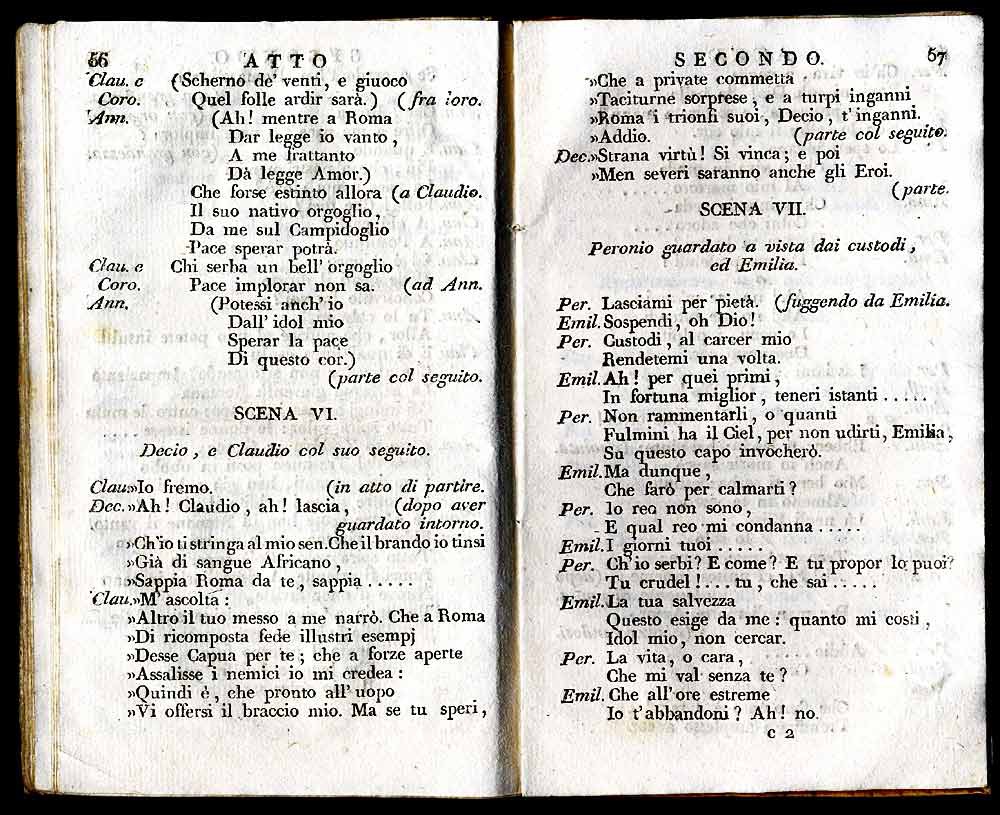 56 ATTO
Clau. e (Scherno de' venti, e giuoco
Coro. Quel folle ardir sarà.) (fra loro.
Ann. (Ah! mentre a Roma
Dar legge io vanto,
A me frattanto
Dà legge Amor.)
Che forse estinto allora (a Claudio.
Il suo nativo orgoglio,
Da me sul Campidoglio
Pace sperar potrà.
Clau. e Chi serba un bell' orgoglio
Coro. Pace implorar non sa. (ad Ann.
Ann. (Potessi anch' io
Dall' idol mio
Sperar la pace
Di questo cor.)
(parte col seguito.
SCENA VI.
Decio, e Claudio col suo seguito.
Clau.»Io fremo. (in atto di partire.
Dec.»Ah! Claudio, ah! lascia, (dopo aver
guardato intorno.
»Ch'io ti stringa al mio sen. Che il brando io tinsi
»Già di sangue Africano,
»Sappia Roma da te, sappia .....
Clau.»M' ascolta:
»Altro il tuo messo a me narrò. Che a Roma
»Di ricomposta fede illustri esempj
»Desse Capua per te; che a forze aperte
»Assalisse i nemici io mi credea:
»Quindi è, che pronto all' uopo
»Vi offersi il braccio mio. Ma se tu speri,
SECONDO. 57
»Che a private commetta
»Taciturne sorprese, e a turpi inganni
»Roma i trionfi suoi, Decio, t'inganni.
»Addio. (parte col seguito.
Dec.»Strana virtù! Si vinca; e poi
»Men severi saranno anche gli Eroi.
(parte.
SCENA VII.
Peronio guardato a vista dai custodi,
ed Emilia.
Per. Lasciami per pietà. (fuggendo da Emilia.
Emil. Sospendi, oh Dio!
Per. Custodi, al carcer mio
Rendetemi una volta.
Emil. Ah! per quei primi,
In fortuna miglior, teneri istanti .....
Per. Non rammentarli, o quanti
Fulmini ha il Ciel, per non udirti, Emilia,
Su questo capo invocherò.
Emil. Ma dunque,
Che farò per calmarti?
Per. Io reo non sono,
E qual reo mi condanna .....
Emil. I giorni tuoi .....
Per. Ch'io serbi? E come? E tu propor lo puoi?
Tu crudel!.... tu, che sai .....
Emil. La tua salvezza
Questo esige da me: quanto mi costi,
Idol mio, non cercar.
Per. La vita, o cara,
Che mi val senza te?
Emil. Che all' ore estreme
Io t'abbandoni? Ah! no.
C 2